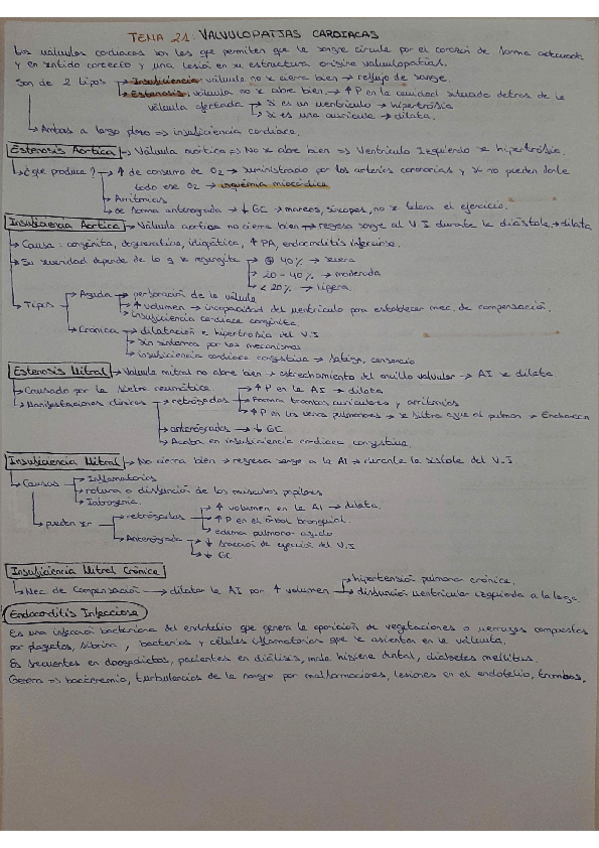 TEMA 21: VALVULOPATIAS CARDIACAS
Las válvulas cardiacas son las que permiten que la sangre circule por el corazón de forma adecuada
y en sentido correcto y una lesión en su estructura origina valvulopatías.
Son de 2 tipos → Insuficiencia: válvula no se cierra bien → reflujo de sangre.
→ Estenosis, válvula no se abre bien. → ↑ P en la cavidad situada detrás de la
válvula afectada → Si es un ventrículo → hipertrofia
→ Si es una aurícula → dilata.
→ Ambas a largo plazo => insuficiencia cardiaca.
Estenosis Aortica → Válvula aórtica => No se abre bien => Ventrículo Izquierdo se hipertrofia.
→ ¿Que produce? → ↑ de consumo de O2 → suministrado por las arterias coronarias y si no pueden darle
todo ese O2 → isquemia miocárdica
→ Arritmias
→ de forma anterograda → ↓ GC → mareos, síncopes, no se tolera el ejercicio.
Insuficiencia Aortica → Válvula aortica no cierra bien → regresa sangre al V.I durante la diástole → dilata
→ Causa: congénita, degenerativa, idiopática, ↑ PA, endocarditis infecciosa.
→ Su severidad depende de lo q se regurgita → @ 40% → severa
→ 20-40% → moderada
→ < 20% → ligera
→ Tipos → Aguda → perforación de la válvula
→ ↑ volumen → incapacidad del ventrículo para establecer mec. de compensación.
→ insuficiencia cardiaca congénita.
→ Cronica → dilatación e hipertrofia del V.I
→ Sin síntomas por los mecanismos
→ insuficiencia cardiaca congestiva → fatiga, cansancio
Estenosis Mitral → Válvula mitral no abre bien → estrechamiento del anillo valvular → AI se dilata.
→ Causado por la fiebre reumática
→ Manifestaciones clínicas → retrógradas → ↑ P en la AI → dilata
→ Forma trombos auriculares y arritmias
→ ↑ P en las venas pulmonares → se filtra agua al pulmón →
→ anterógradas → ↓ GC
→ Acaba en insuficiencia cardiaca congestiva.
Insuficiencia Mitral → No cierra bien → regresa sangre a la AI → durante la sístole del V.I
→ Causas → Inflamatorios
→ rotura o disfunción de los músculos papilares
→ Iatrogenia.
→ pueden ser → retrógradas → ↑ volumen en la AI → dilata.
→ ↑ P en el árbol bronquial.
→ edema pulmonar agudo
→ Anterógrada → ↓ fracción de eyección del V.I
→ ↓ GC
Insuficiencia Mitral Crónica
→ Mec. de Compensación → dilatar la AI por ↑ volumen → hipertensión pulmonar crónica.
→ disfunción ventricular izquierda a la larga.
Endocarditis Infecciosa
Es una infección bacteriana del endotelio que genera la aparición de vegetaciones o verrugas compuestas
por plaquetas, fibrina, bacterias y células inflamatorias que se asientan en la válvula.
Es frecuentes en drogadictos, pacientes en diálisis, mala higiene dental, diabetes mellitus.
Genera => bacteremia, turbulencias de la sangre por malformaciones, lesiones en el endotelio, trombos.